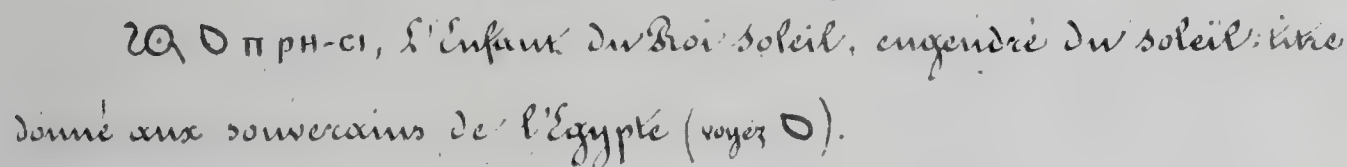 π ρΗ-CI, L'Enfant du Roi soleil, engendré du soleil: titre
donné aux souverains de l'Egypte (voyez).